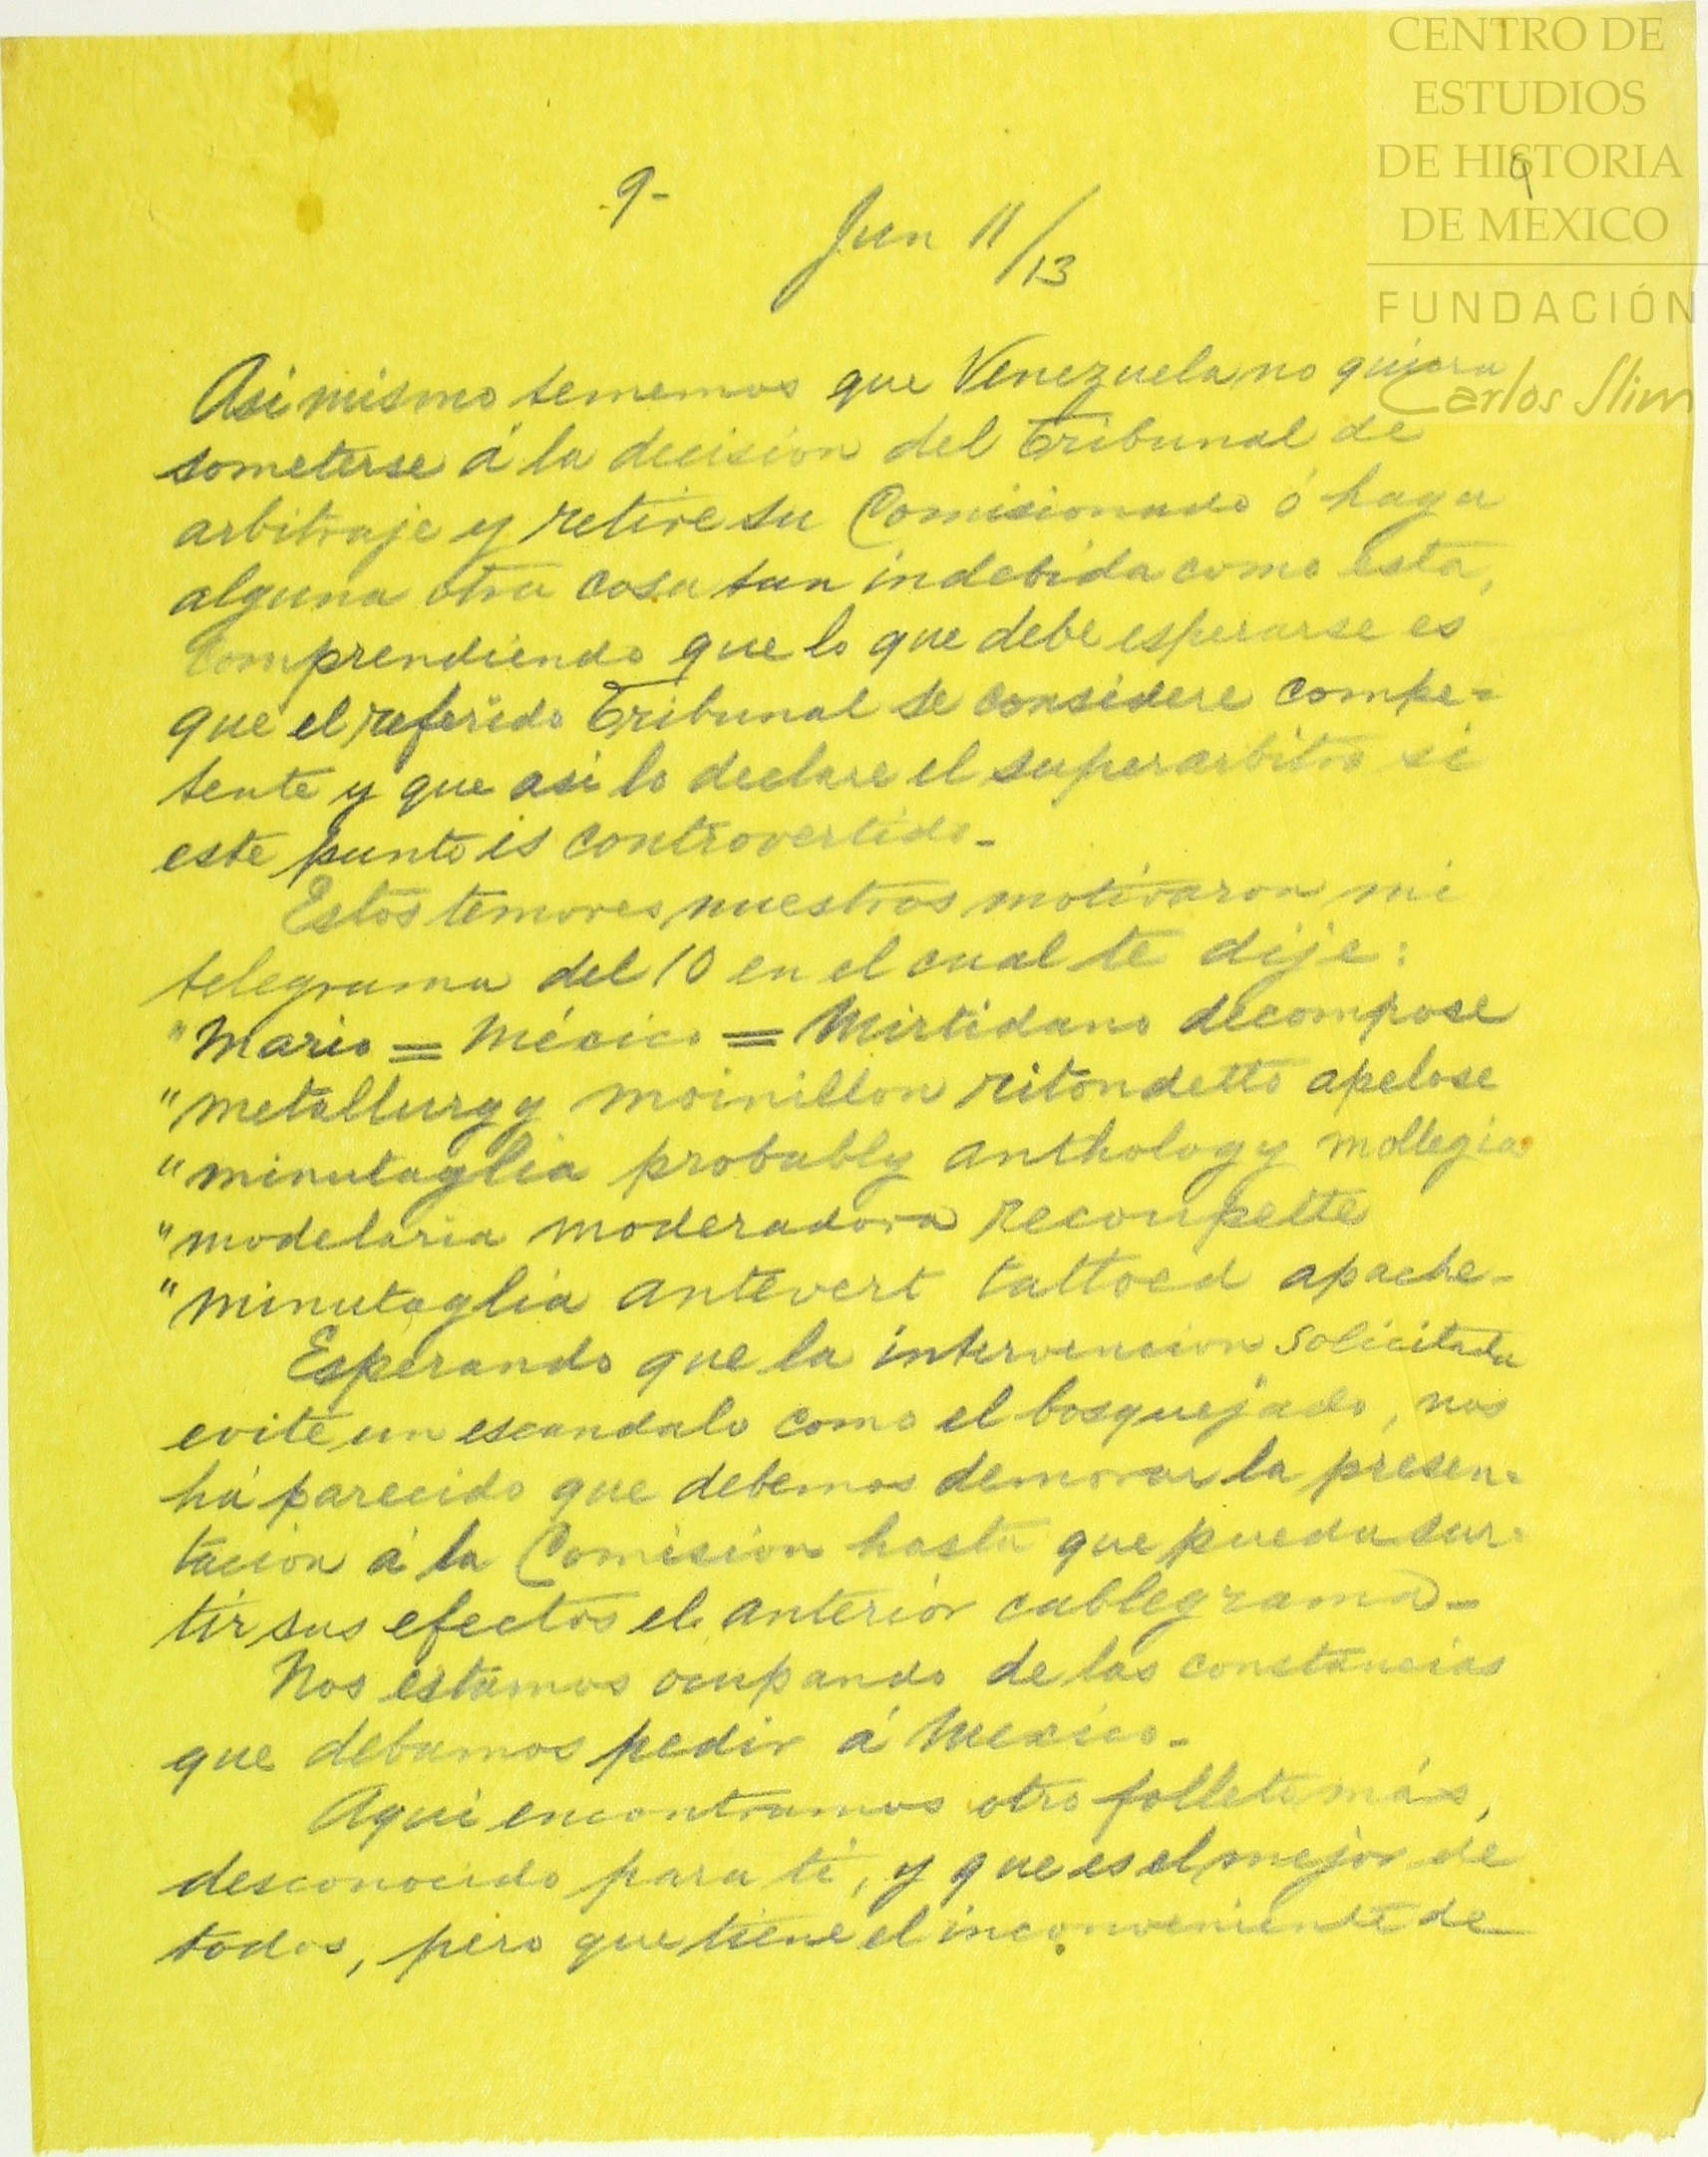 CENTRO DE
ESTUDIOS
DE HISTORIA
DE MEXICO
FUNDACIÓN
Carlos Slim
9
-9-
Jun 11/13
Asi mismo tememos que Venezuela no quiera
someterse á la decision del Tribunal de
arbitraje y retire su Comisionado ó haga
alguna otra cosa tan indebida como esta,
comprendiendo que lo que debe esperarse es
que el referido Tribunal se considere compe=
tente y que asi lo declare el superarbitro si
este punto es controvertido_
Estos temores nuestros motivaron mi
telegrama del 10 en el cual te dije:
"Mario = México = Mirtidano decompose
"metallurgy moinillon ritondetto apelose
"minutaglia probably anthology mollegia
"modelaria moderadora recoupette
"minutaglia antevert tattoed apache_
Esperando que la intervencion solicitada
evite un escandalo como el bosquejado, nos
há parecido que debemos demorar la presen=
tacion á la Comision hasta que pueda sur=
tir sus efectos el anterior cablegrama_
Nos estamos ocupando de las constancias
que debamos pedir á Mexico_
Aqui encontramos otro folleto más,
desconocido para ti, y que es el mejor de
todos, pero que tiene el inconveniente de